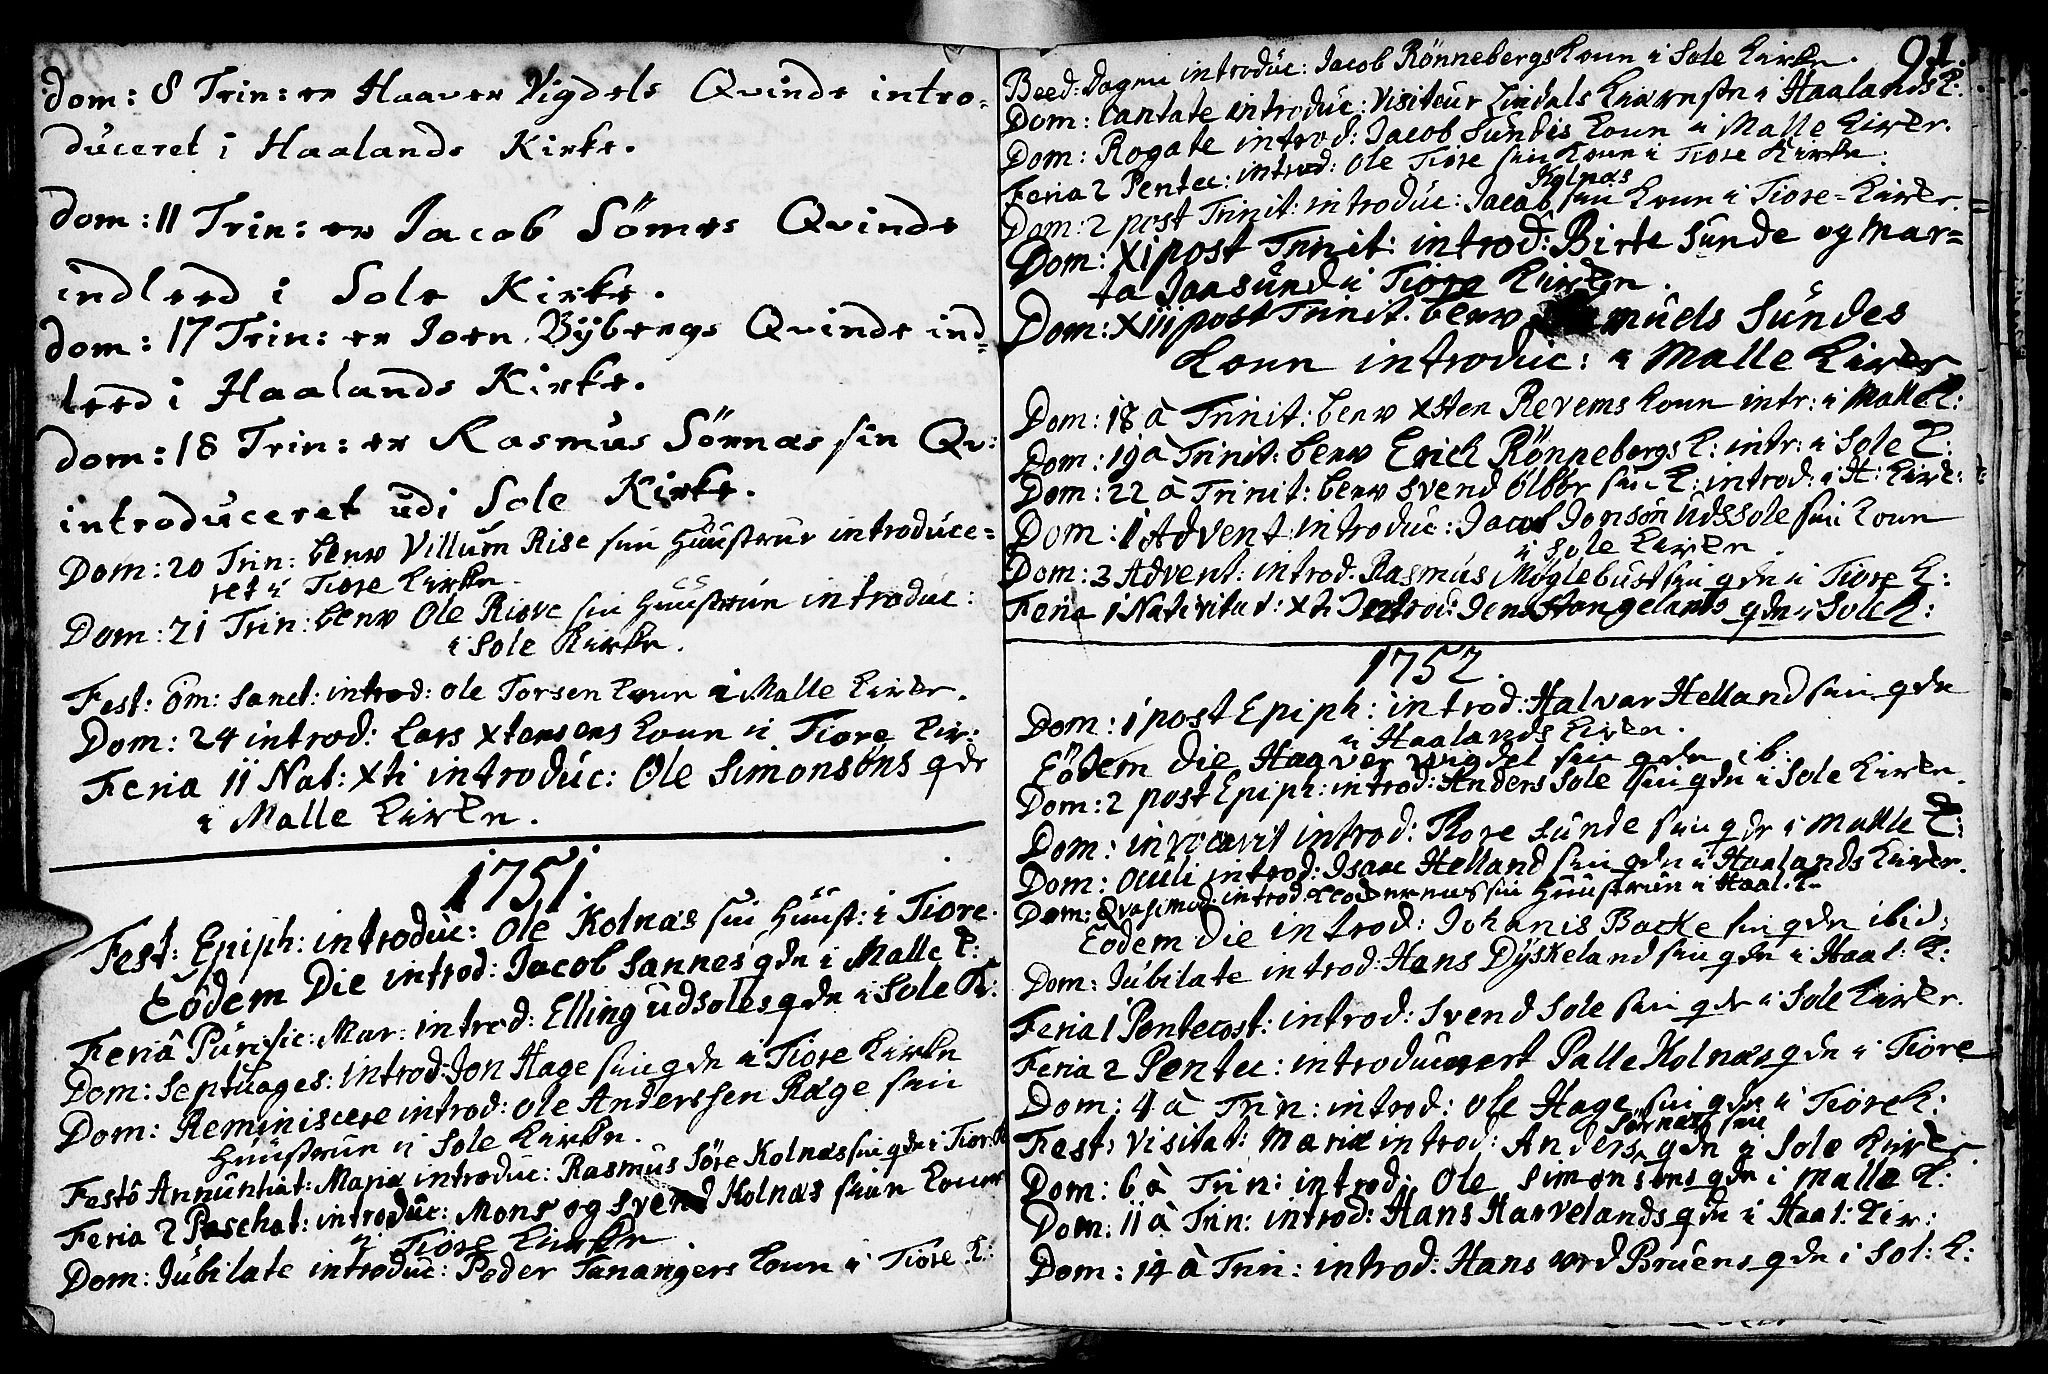 dom: 8 Trin: er Haaver Vigdels Qvinde intro=
duceret i Haalands Kirke.
dom: 11 Trin: er Jacob Sömes Qvinde
indleed i Sole Kirke.
dom: 17 Trin: er Joen Bÿbergs Qvinde ind=
leed i Haalands Kirke.
dom: 18 Trin: er Rasmus Sörnæs sin Qv:
introduceret udi Sole Kirke.
Dom: 20 Trin: blev Villum Rise sin Huustrue introduce=
ret i Tiore Kirke.
Dom: 21 Trin: blev Ole Risve sin Huustrue introduc:
i Sole Kirke.
Fest: om: Sanct: introd: Ole Torsen Kone i Malle Kirke.
Dom: 24 introd: Lars Xtensens Kone i Tiore Kir:
Feria II Nat: Xti introduc: Ole Simonsöns qde
i Malle Kirke.
1751.
Fest: Epiph: introduc: Ole Kolnæs sin Huust: i Tiore.
Eôdem Die introd: Jacob Sannes qde i Malle K:
Feriâ Purific: Mar: introd: Elling udsoles qde i Sole K:
Dom: Septuages: introd: Jon Hage sin qde i Tiore Kirke
Dom: Reminiscere introd: Ole Anderssen Ræge sin
Huustrue i Sole Kirke.
Festô Annuntiat: Mariæ introduc: Rasmus Söre Kolnæs sin qde i Tior: K
Feria 2 Paschat: introduc: Mons og Svend Kolnæs sine Koner
i Tiore Kirke
Dom: Jubilate introduc: Peder Tanangers Kone i Tiore K:
91.
Beed: Dagen introduc: Jacob Rönnebergs Kone i Sole Kirke.
Dom: Cantate introduc: Visiteur Lindals Kiæreste i Haalands K:
Dom: Rogate introd: Jacob Sundes Kone i Malle Kirke.
Feria 2 Pentec: introd: Ole Tiore sin Kone i Tiore Kirke.
Kolnæs
Dom: 2 post Trinit: introduc: Jacob sin Kone i Tiore=Kirke.
Dom: XI post Trinit: introd: Birte Sunde og Mar=
ta Jaasund i Tiore Kirke.
Dom: XIII post Trinit. blev Samuels Sundes
Kone introduc: i Malle Kirke
Dom: 18 à Trinit: blev Xsten Revems Kone intr: i Malle K:
Dom: 19 à Trinit: blev Erich Rönnebergs K: intr: i Sole K:
Dom: 22 à Trinit: blev Svend Ölbör sin K: introd: i H: Kirk:
Dom: 1 Advent introduc: Jacob Jonsön Udssole sin Kone
i Sole Kirke.
Dom: 3 Advent: introd. Rasmus Möglebust sin qde i Tiore K:
Feria 1 Nativitat: Xti Introd: Jens Stangelands qde i Sole K:
1752.
Dom: 1 post Epiph: introd: Halvar Helland sin qde
i Haalands Kirke.
Eôdem Die Hagver Wigdel sin qde ib:
Dom: 2 post Epiph: introd: Anders Sole sin qde i Sole Kirke.
Dom: invocavit introd: Tore Sunde sin qde i Malle K:
Dom: Oculi introd: Isaac Helland sin qde i Haalands Kirke.
Dom: Qvasimod: introd: sin Huustrue i Haal: K.
Eodem Die introd: Johanis Backe sin qde ibid:
Dom: Jubilate introd: Hans Dÿskeland sin qde i Haal: K:
Feria 1 Pentecost: introd: Svend Sole sin qde i Sole Kirke.
Feria 2 Pentec: introduceret Palle Kolnæs qde i Tiore
Dom: 4 à Trin: introd: Ole Hage sin qde i Tiore K:
Sörnæs sin
Fest: Visitat: Mariæ introd: Anders qde i Sole Kirke
Dom: 6 à Trin: introd: Ole Simonsens qde i Malle K:
Dom: 11 à Trin: introd: Hans Harvelands qde i Haal: Kir:
Dom: 14 à Trin: introd: Hans ved Bruens qde i Sol: K: